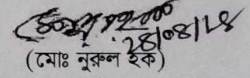 28/08/18
(মোঃ নূরুল হক)